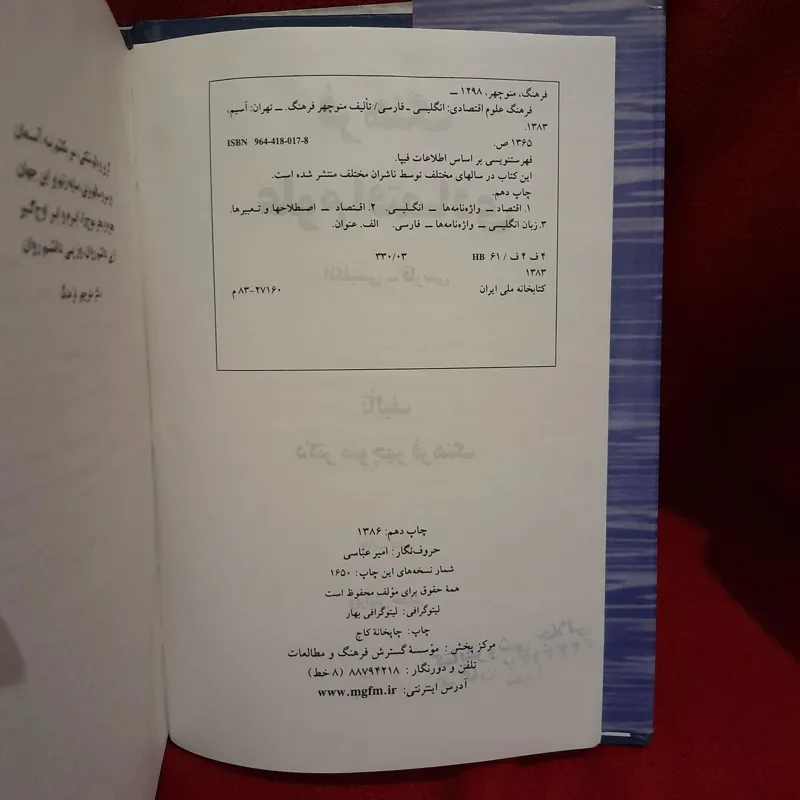 فرهنگ، منوچهر، ۱۲۹۸ ـ
فرهنگ علوم اقتصادی: انگلیسی ـ فارسی/ تألیف منوچهر فرهنگ. ـ تهران: آسیم،
۱۳۸۳.
۱۳۶۵ ص. ISBN 964-418-017-8
فهرستنویسی بر اساس اطلاعات فیپا.
این کتاب در سالهای مختلف توسط ناشران مختلف منتشر شده است.
چاپ دهم.
۱. اقتصاد ـ واژه‌نامه‌ها ـ انگلیسی. ۲. اقتصاد ـ اصطلاحها و تعبیرها.
۳. زبان انگلیسی ـ واژه‌نامه‌ها ـ فارسی. الف. عنوان.
۴ ف ۴ ف / ۶۱ HB ۳۳۰/۰۳
۱۳۸۳
کتابخانه ملی ایران ۸۳-۲۷۱۶۰ م
چاپ دهم: ۱۳۸۶
حروف‌نگار: امیر عبّاسی
شمار نسخه‌های این چاپ: ۱۶۵۰
همهٔ حقوق برای مؤلف محفوظ است
لیتوگرافی: لیتوگرافی بهار
چاپ: چاپخانهٔ کاج
مرکز پخش: مؤسسهٔ گسترش فرهنگ و مطالعات
تلفن و دورنگار: ۸۸۷۹۴۲۱۸ (۸ خط)
آدرس اینترنتی: www.mgfm.ir